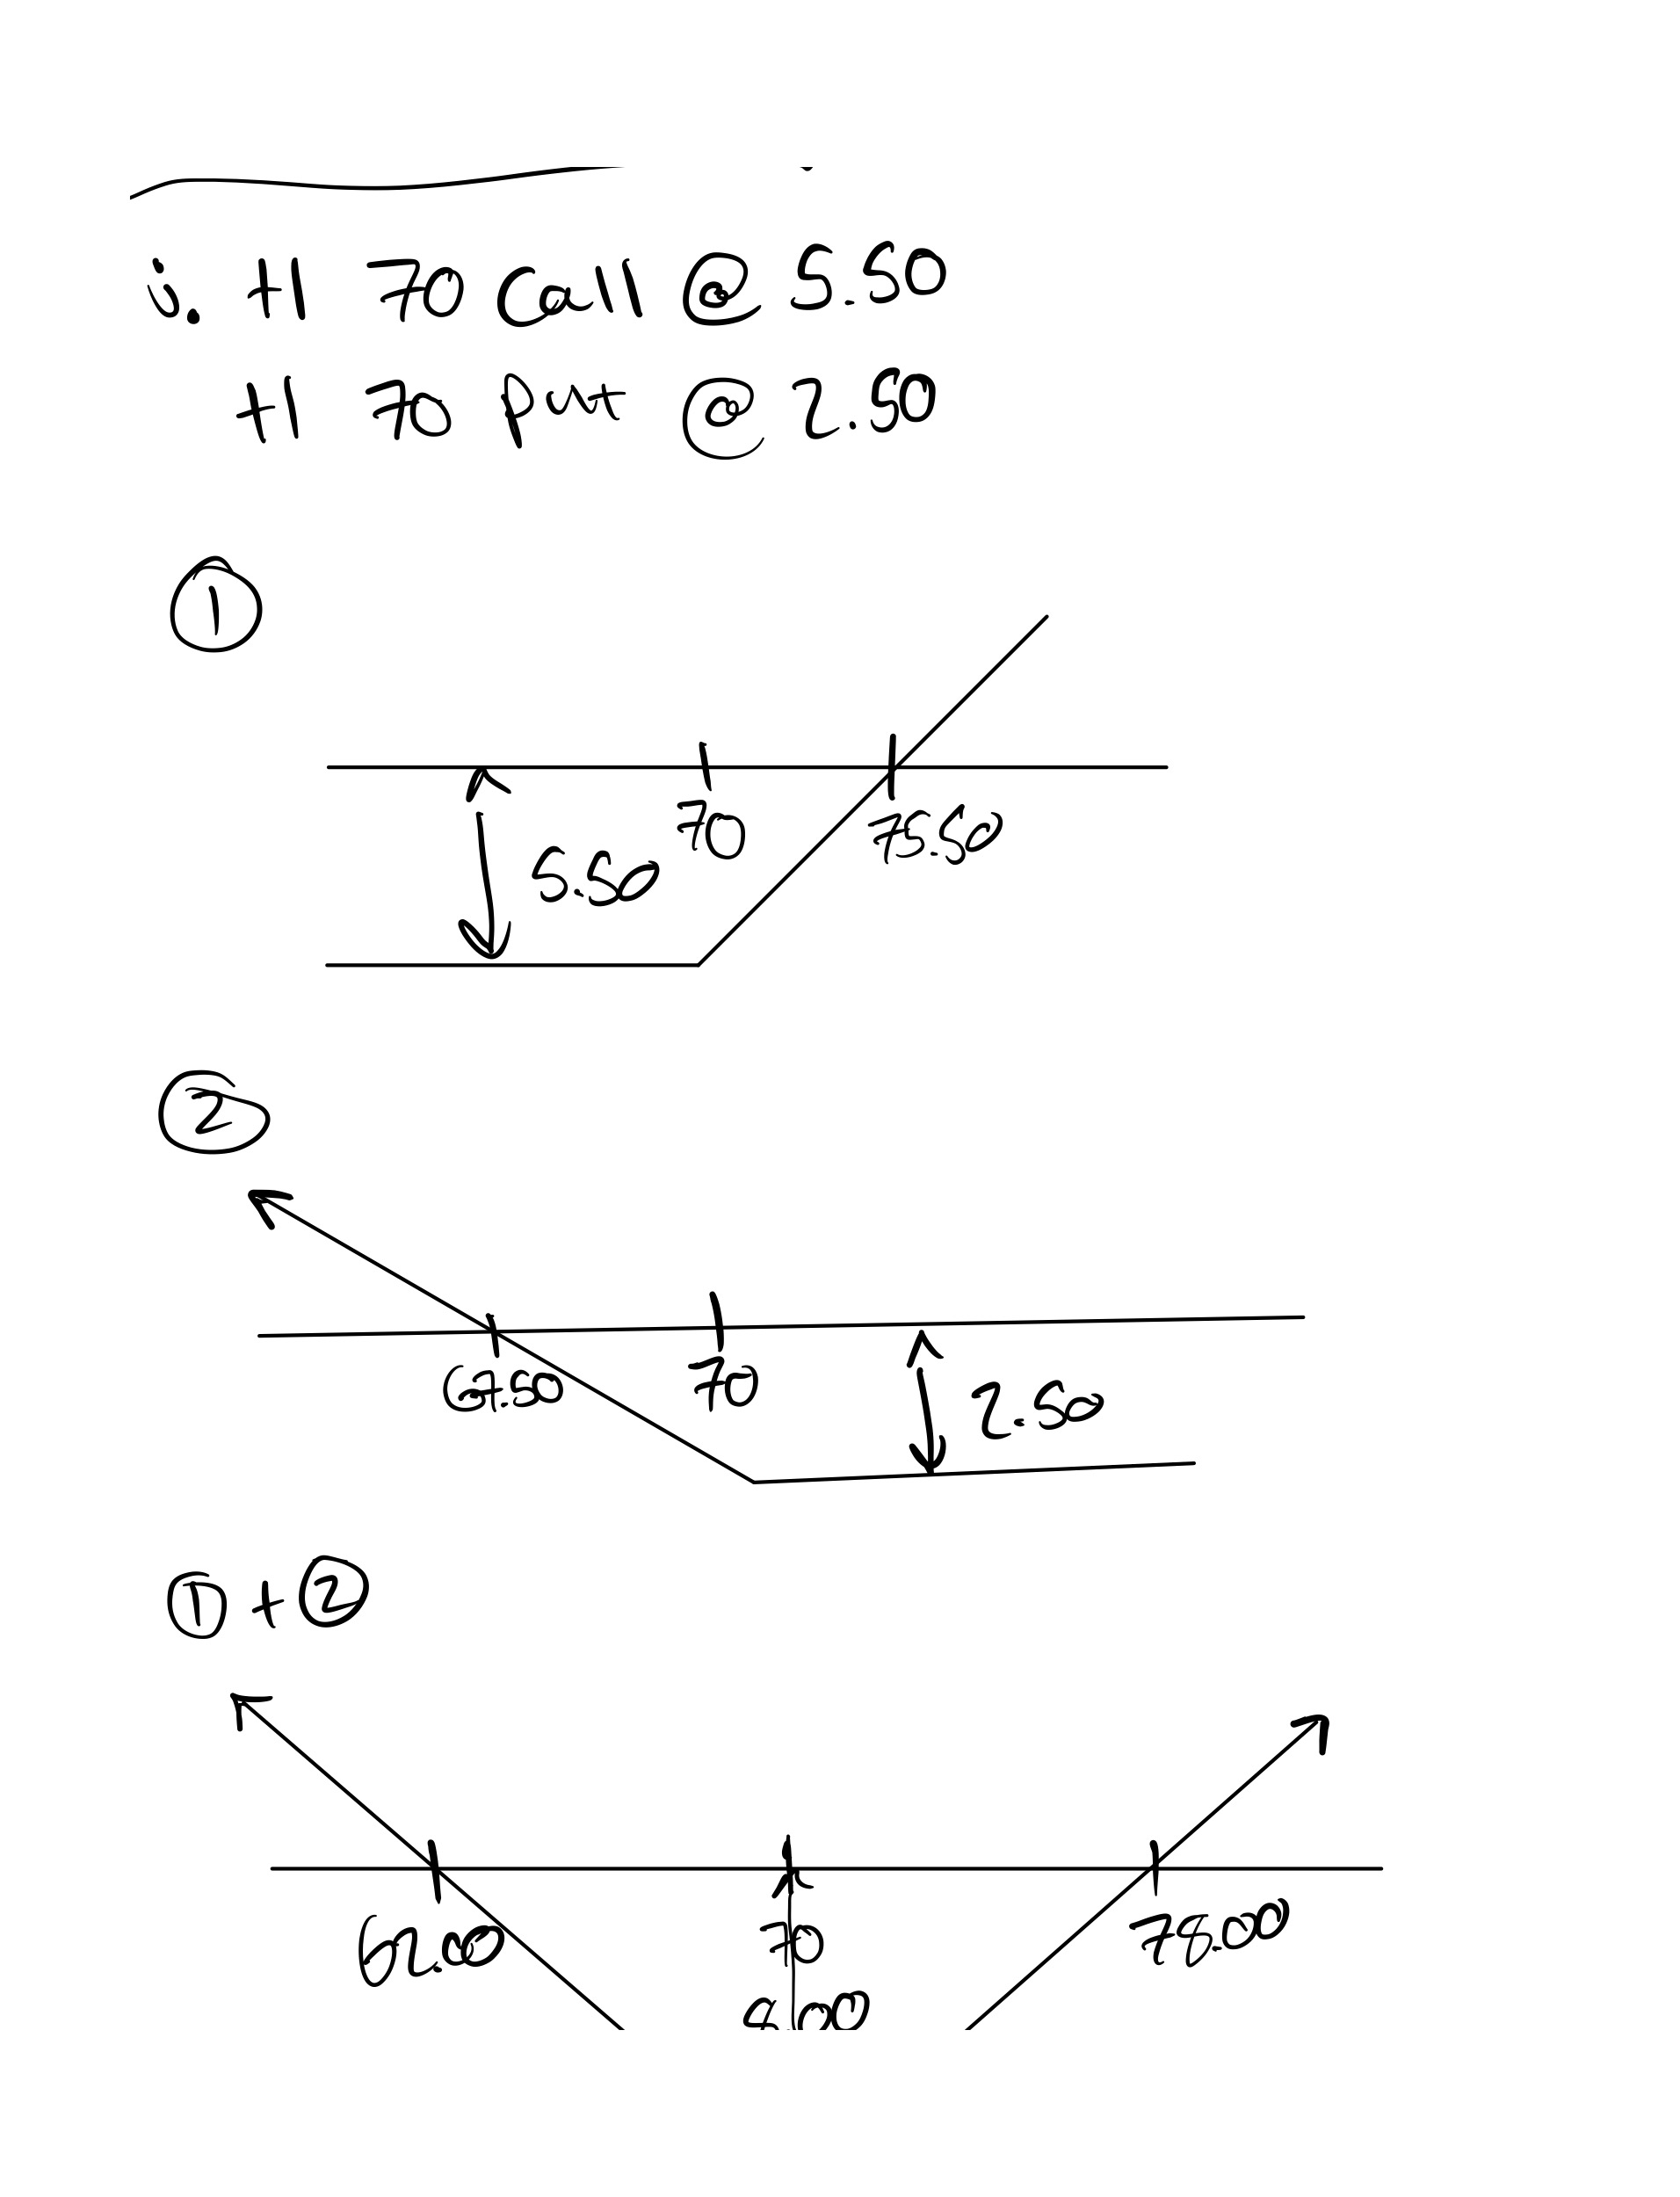 i. +1 70 Call @ 5.50
+1 70 Put @ 2.50
1
70
75.50
5.50
2
67.50
70
2.50
1 + 2
62.00
70
78.00
8.00